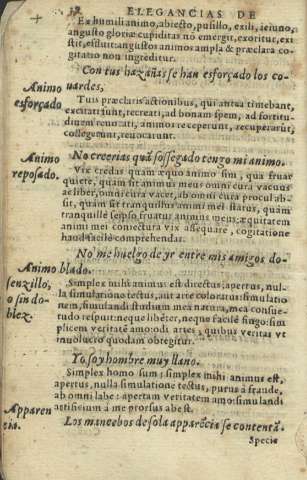 ELEGANCIAS DE
Ex humili animo, abiecto, pusillo, exili, ieiuno,
angusto gloriæ cupiditas nò emergit, exoritur, exi
stit, effluit: angustos animos ampla & præclara co-
gitatio non ingreditur.
Con tus hazañas se han esforçado los co-
uardes,
Animo
esforçado
Tuis præclaris actionibus, qui antea timebant,
excitati sunt, recreati, ad bonam spem, ad fortitu-
dinem reuocati, animos receperunt, recuperarūt,
collegerunt, reuocarunt.
Animo
reposado.
No creerias quā sossegado tengo mi animo.
Vix credas quam æquo animo sim, qua fruar
quiete, quàm sit animus meus omni cura vacuus
ac liber, omni cura vacet, ab omni cura procul ab-
sit, quàm sit tranquillus animi mei status, quàm
tranquillè seipso fruatur animus meus, æquitatem
animi mei coniectura vix assequare, cogitatione
haud facilè comprehendas.
No me huelgo de yr entre mis amigos do-
blado.
Animo
senzillo,
o sin do-
blez.
Simplex mihi animus est directus, apertus, nul-
la simulatione tectus, aut arte coloratus: simulatio
nem, simulandi studium mea natura, mea consue-
tudo respuit: neque libēter, neque facilè fingo: sim
plicem veritatē amo: odi artes, quibus veritas vt
inuolucro quodam obtegitur.
Yo soy hombre muy llano.
Simplex homo sum: simplex mihi animus est,
apertus, nulla simulatione tectus, purus à fraude,
ab omni labe: apertam veritatem amo: simulandi
artificium à me prorsus abest.
Apparen
cia.
Los mancebos de sola apparēcia se contentā.
Specie